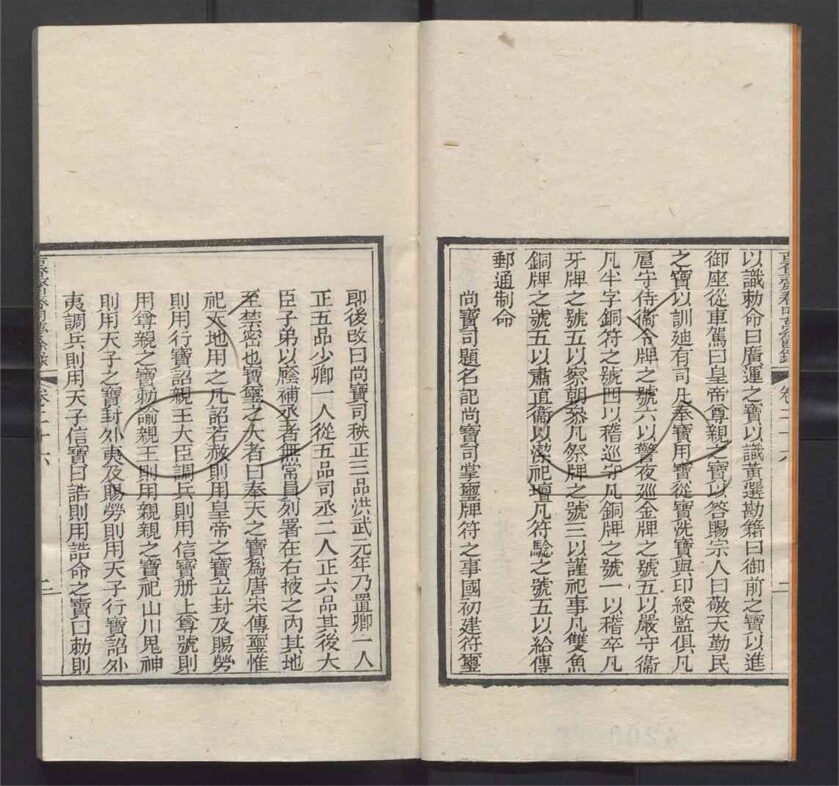 以識勅命曰廣運之寶以識黃選勘籍曰御前之寶以進
御座從車駕曰皇帝尊親之寶以答賜宗人曰敬天勤民
之寶以訓廸有司凡奉寶用寶從寶洗寶與印綬監俱凡
扈守侍衞令牌之號六以警夜廵金牌之號五以嚴守衞
凡半字銅符之號四以稽巡守凡銅牌之號一以稽卒凡
牙牌之號五以察朝叅凡祭牌之號三以謹祀事凡雙魚
銅牌之號五以肅直衞以潔祀壇凡符驗之號五以給傳
郵通制命
尚寶司題名記尚寶司掌璽牌符之事國初建符璽
卽後改曰尚寶司秩正三品洪武元年乃置卿一人
正五品少卿一人從五品司丞二人正六品其後大
臣子弟以廕補丞者無常員列署在右掖之內其地
至禁密也寶璽之大者曰奉天之寶爲唐宋傳璽惟
祀天地用之凡詔若赦則用皇帝之寶立封及賜勞
則用行寶詔親王大臣調兵則用信寶册上尊號則
用尊親之寶勅諭親王則用親親之寶祀山川鬼神
則用天子之寶封外夷及賜勞則用天子行寶詔外
夷調兵則用天子信寶曰誥則用誥命之寶曰勅則
卷二十六
二